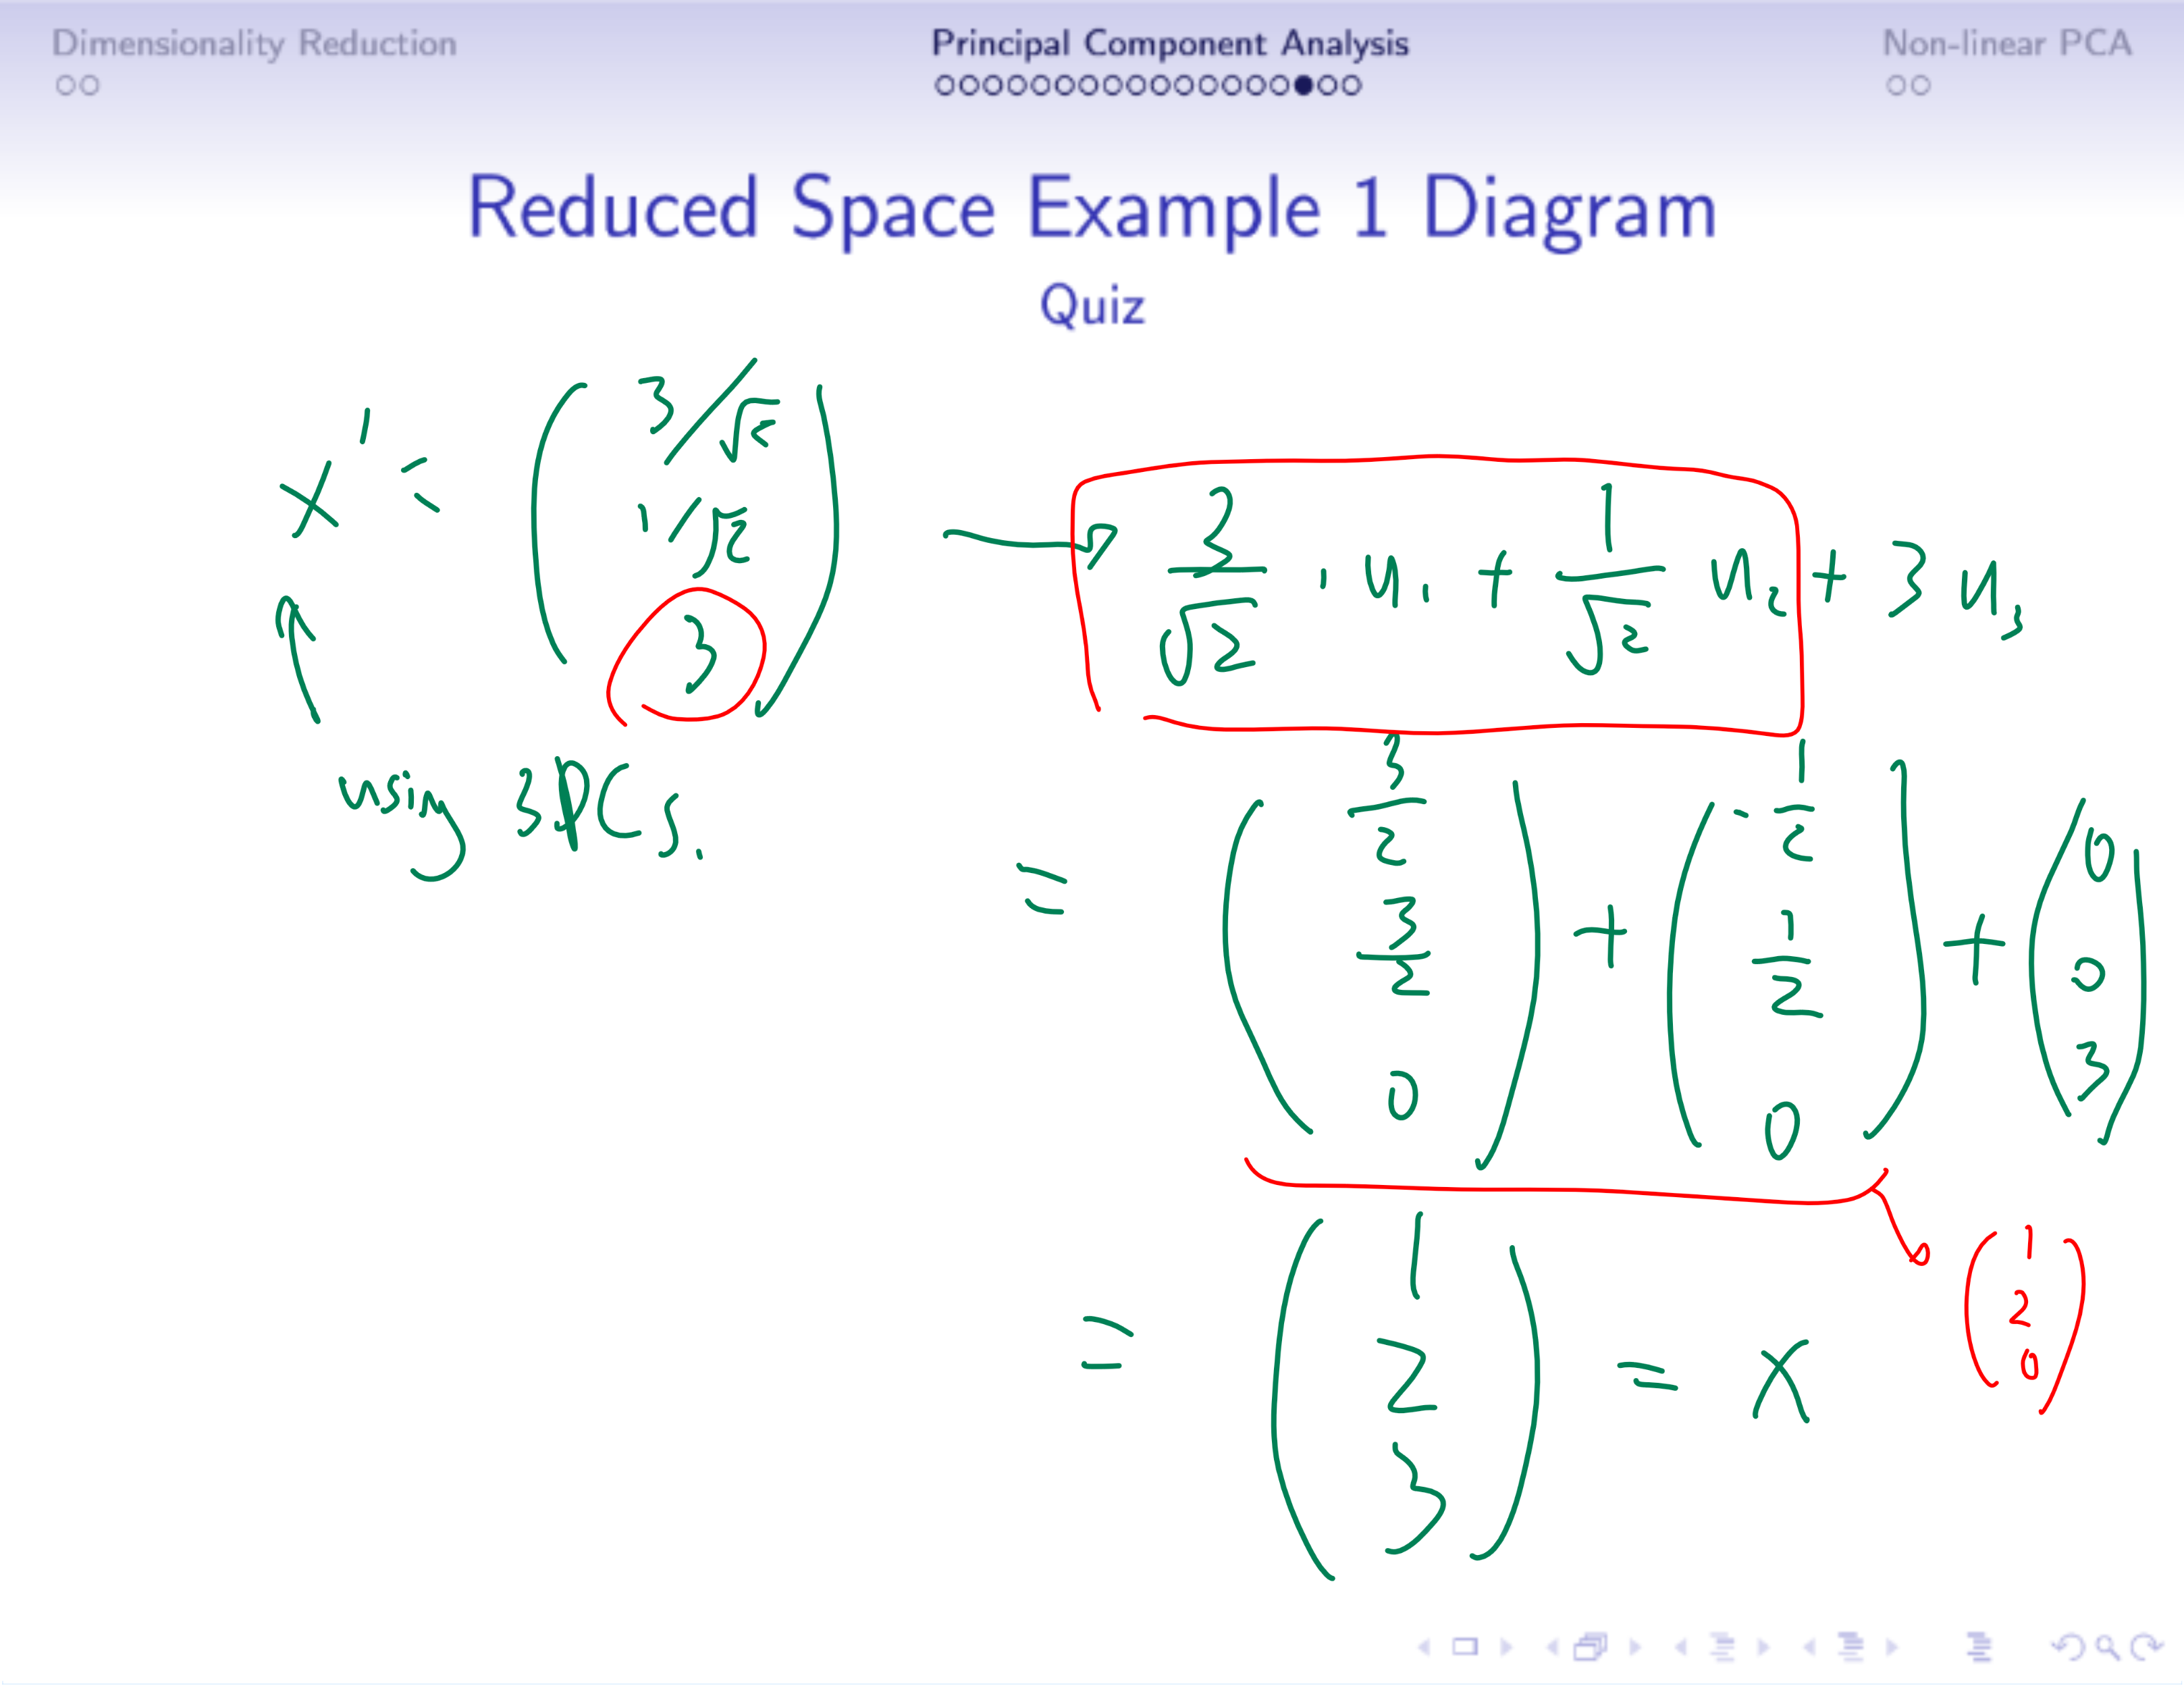 Dimensionality Reduction Principal Component Analysis Non-linear PCA
Reduced Space Example 1 Diagram
Quiz
x' = ( 3/√2 1/√2 3 ) → 3/√2 · u₁ + 1/√2 u₂ + 3 u₃
using 3PCs.
= ( 3/2 3/2 0 ) + ( -1/2 1/2 0 ) + ( 0 0 3 )
( 1 2 0 )
= ( 1 2 3 ) = x